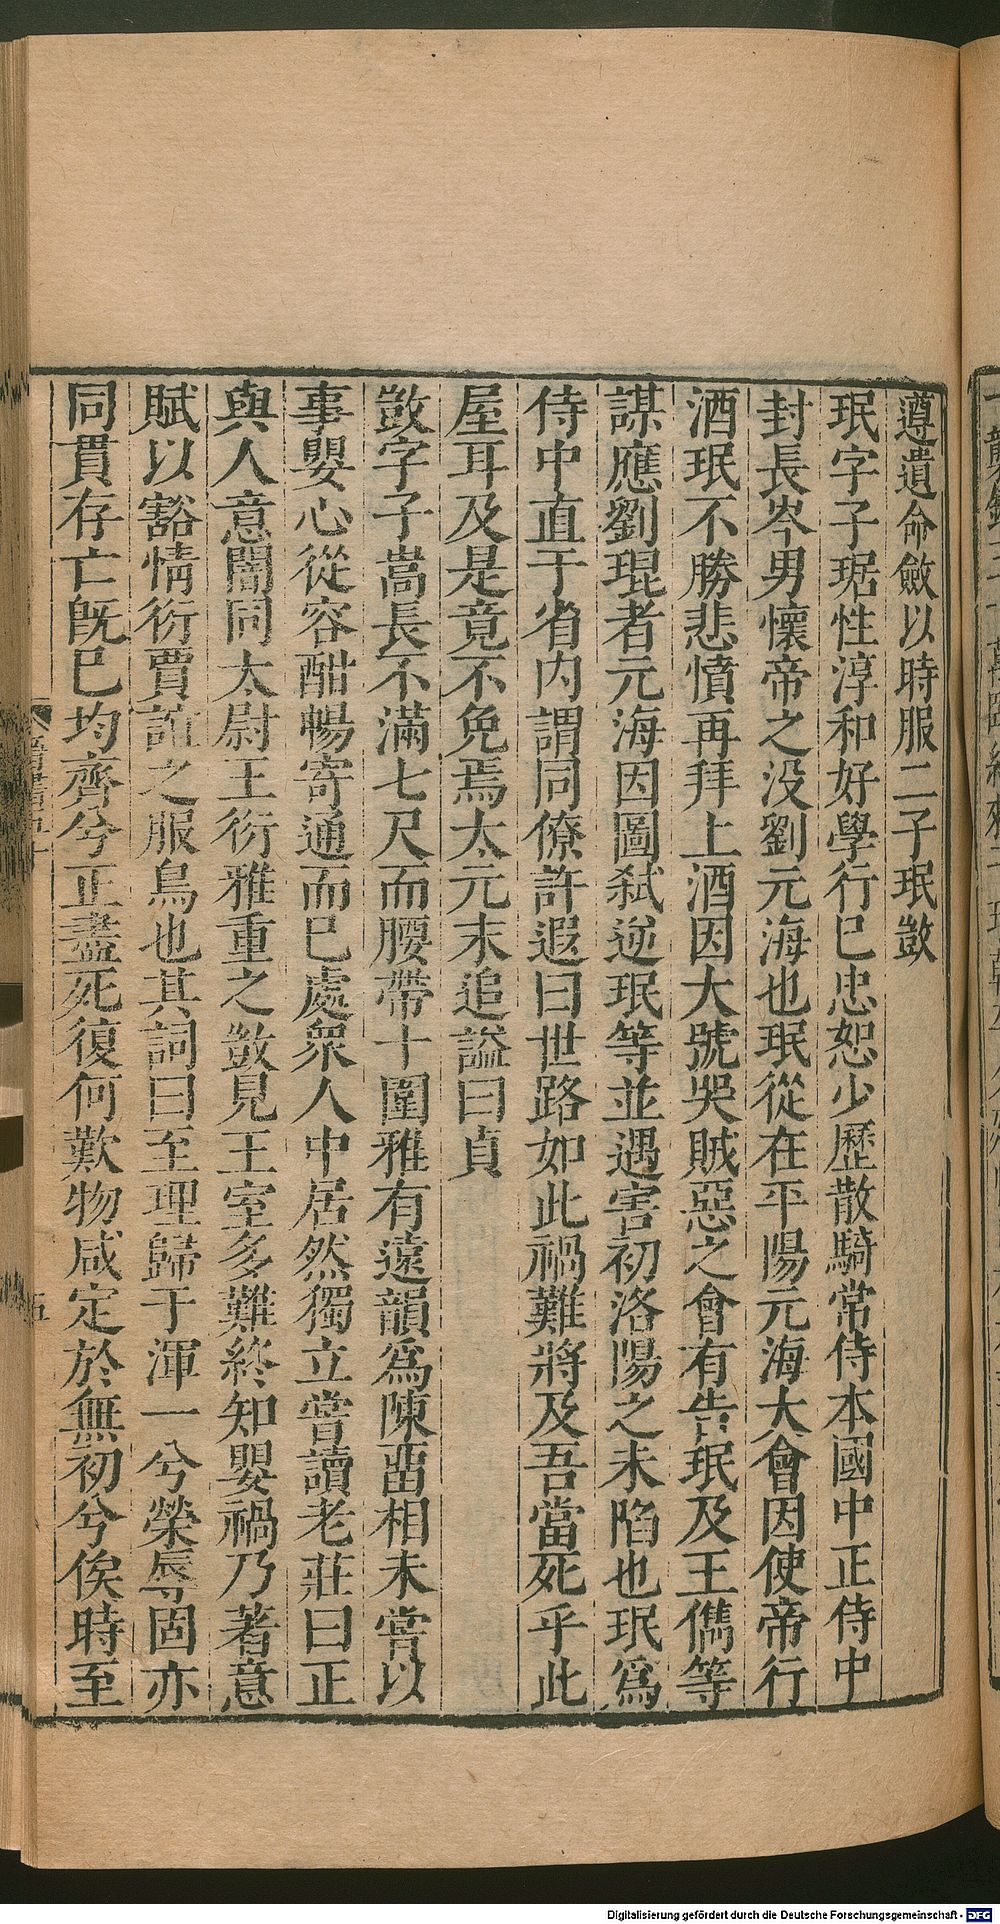 遵遺命斂以時服二子珉敳
珉字子琚性淳和好學行巳忠恕少歷散騎常侍本國中正侍中
封長岑男懷帝之没劉元海也珉從在平陽元海大會因使帝行
酒珉不勝悲憤再拜上酒因大號哭賊惡之會有告珉及王儁等
謀應劉琨者元海因圖弑逆珉等並遇害初洛陽之未陷也珉爲
侍中直于省内謂同僚許遐曰世路如此禍難將及吾當死乎此
屋耳及是竟不免焉太元末追謚曰貞
敳字子嵩長不滿七尺而腰帶十圍雅有遠韻爲陳畱相未嘗以
事嬰心從容酣暢寄通而巳處衆人中居然獨立嘗讀老莊曰正
與人意闇同太尉王衍雅重之敳見王室多難終知嬰禍乃著意
賦以豁情衍賈誼之服鳥也其詞曰至理歸于渾一兮榮辱固亦
同貫存亡旣巳均齊兮正盡死復何歎物咸定於無初兮俟時至
五
Digitalisierung gefördert durch die Deutsche Forschungsgemeinschaft - DFG